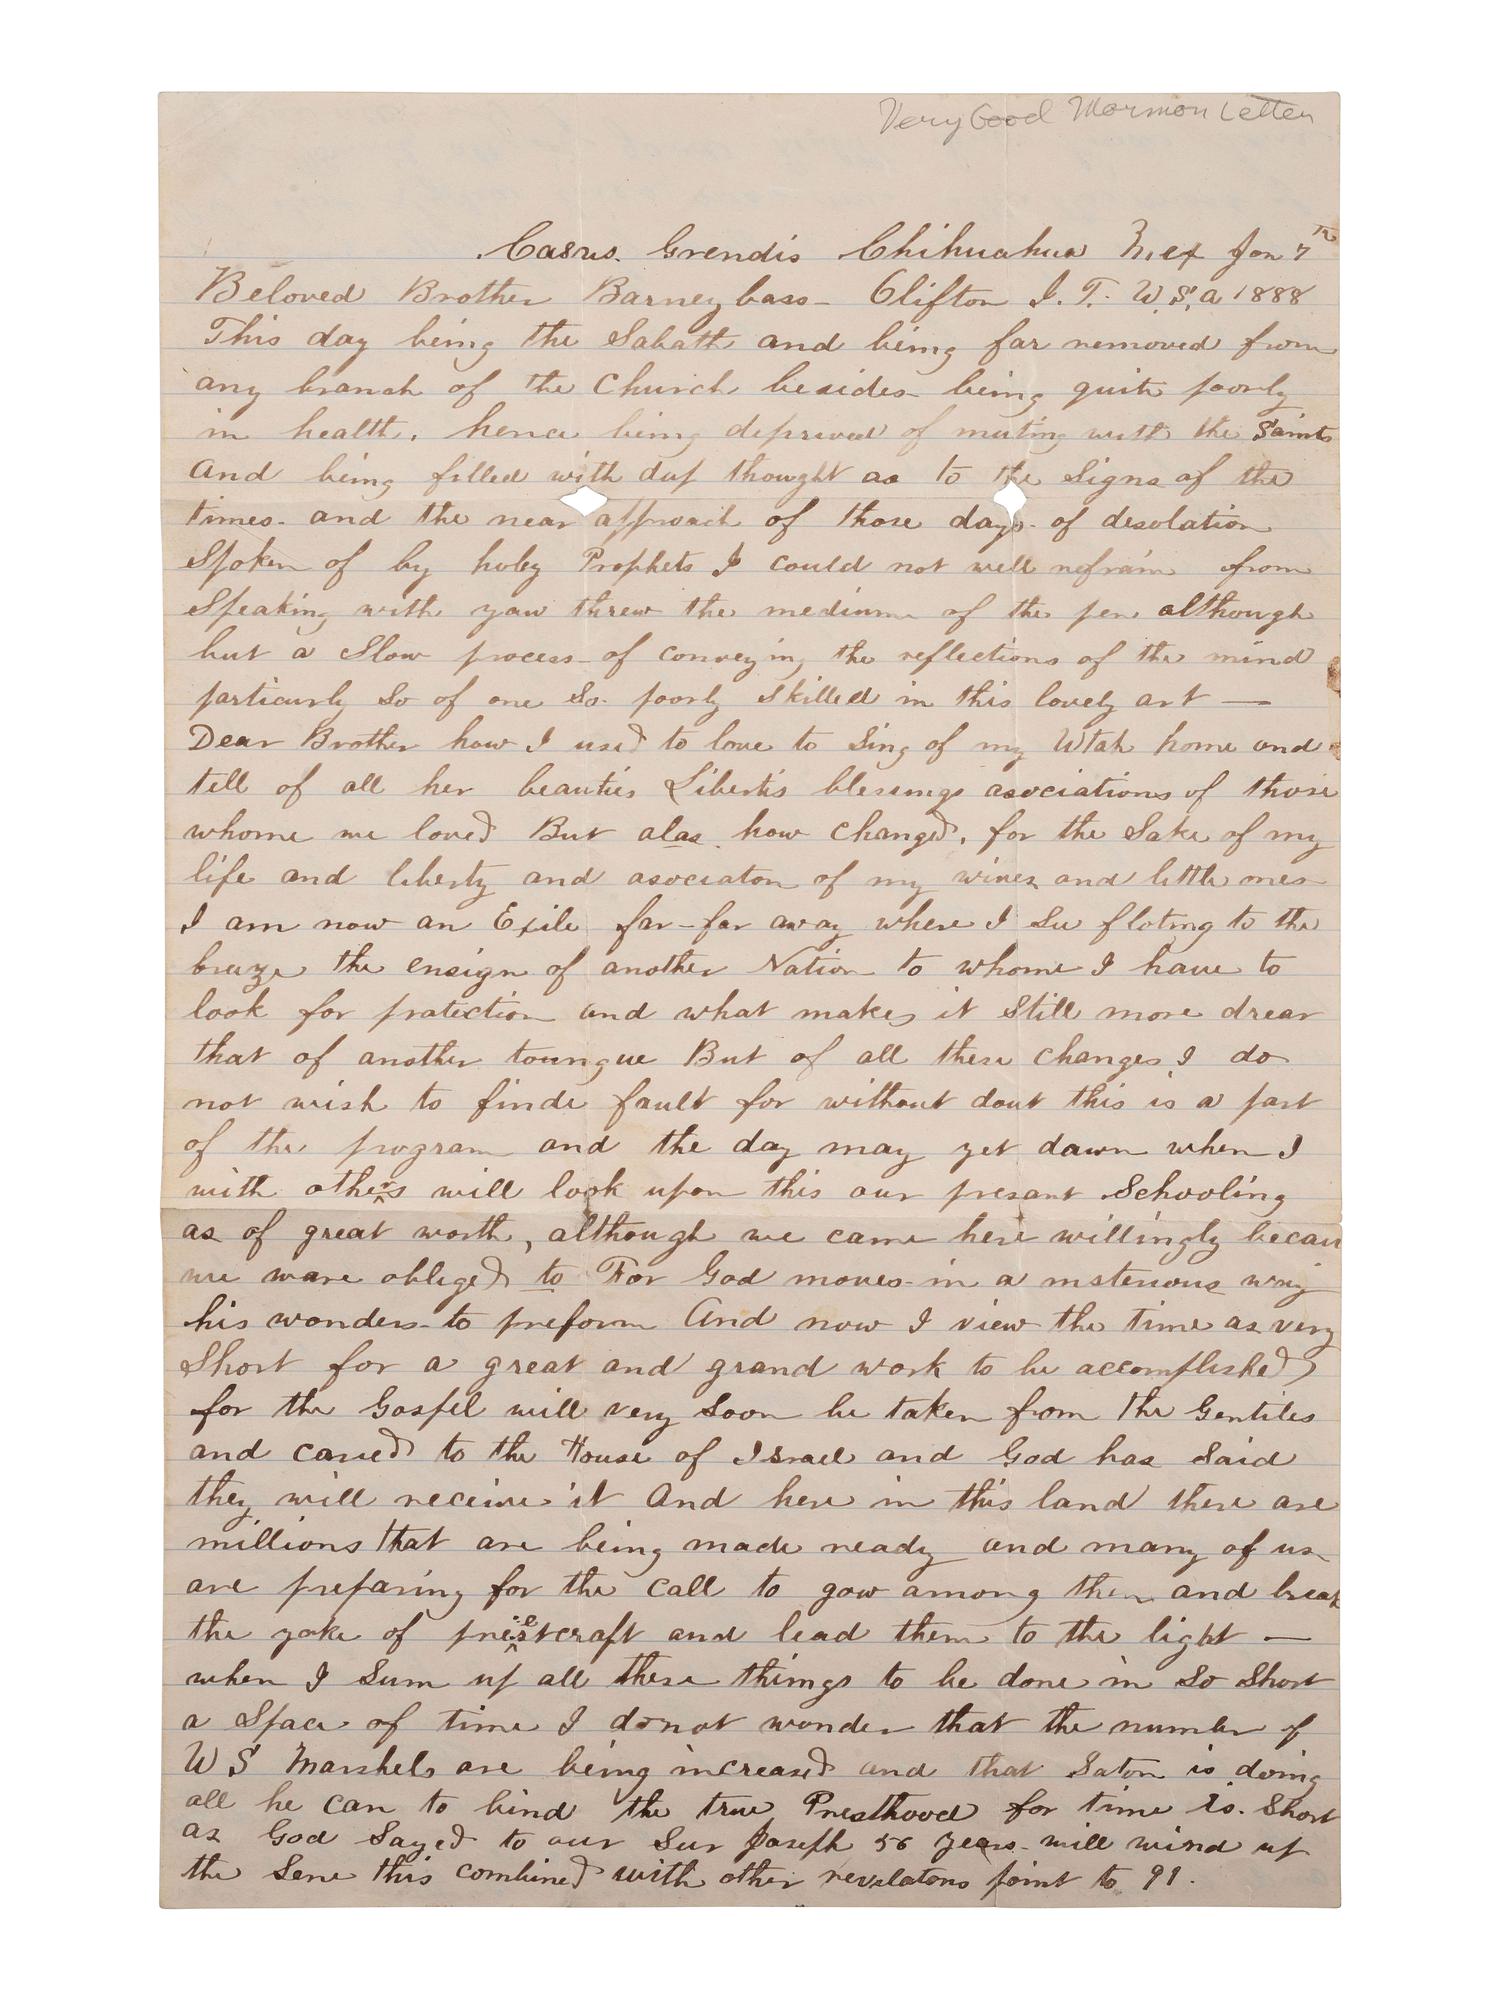 Very Good Mormon Letter
Casus Grendis Chihuahua Mex Jan 7th
Beloved Brother Barneybass - Clifton I. T. U.S.a 1888
This day being the Sabath and being far removed from
any branch of the Church besides being quite poorly
in health, hence being deprived of meeting with the Saints
And being filled with deep thought as to the Signs of the
times - and the near approach of those days - of desolation
Spoken of by holey Prophets I could not well refrain from
Speaking with yaw threw the medium of the pen although
but a Slow process - of conveying the reflections of the mind
particurly So of one So poorly skilled in this lovely art —
Dear Brother how I used to love to Sing of my Utah home and
tell of all her beauties Libertis blessings asociations of those
whome we loved But alas how changed, for the Sake of my
life and liberty and asociaton of my wives and little ones
I am now an Exile far-far away where I See floting to the
breeze the ensign of another Nation to whome I have to
look for protection and what makes it Still more drear
that of another toungue But of all these changes I do
not wish to finde fault for without dout this is a part
of the program and the day may yet dawn when I
with others will look upon this our present Schooling
as of great worth, although we came here willingly becaus
we ware obliged to For God moves in a misterious way
his wonders to preform And now I view the time as very
Short for a great and grand work to be accomplished
for the Gospel will very Soon be taken from the Gentiles
and caried to the House of Israel and God has Said
they will receive it And here in this land there are
millions that are being made ready and many of us
are prepairing for the call to gow among them and break
the yoke of priestcraft and lead them to the light —
when I Sum up all these things to be done in So Short
a Space of time I do not wonder that the number of
U S Marshels are being increased and that Saton is doing
all he can to bind the true Presthood for time is Short
as God Sayed to our Seer Joseph 56 years will wind up
the Sene this combined with other revelatons point to 91.